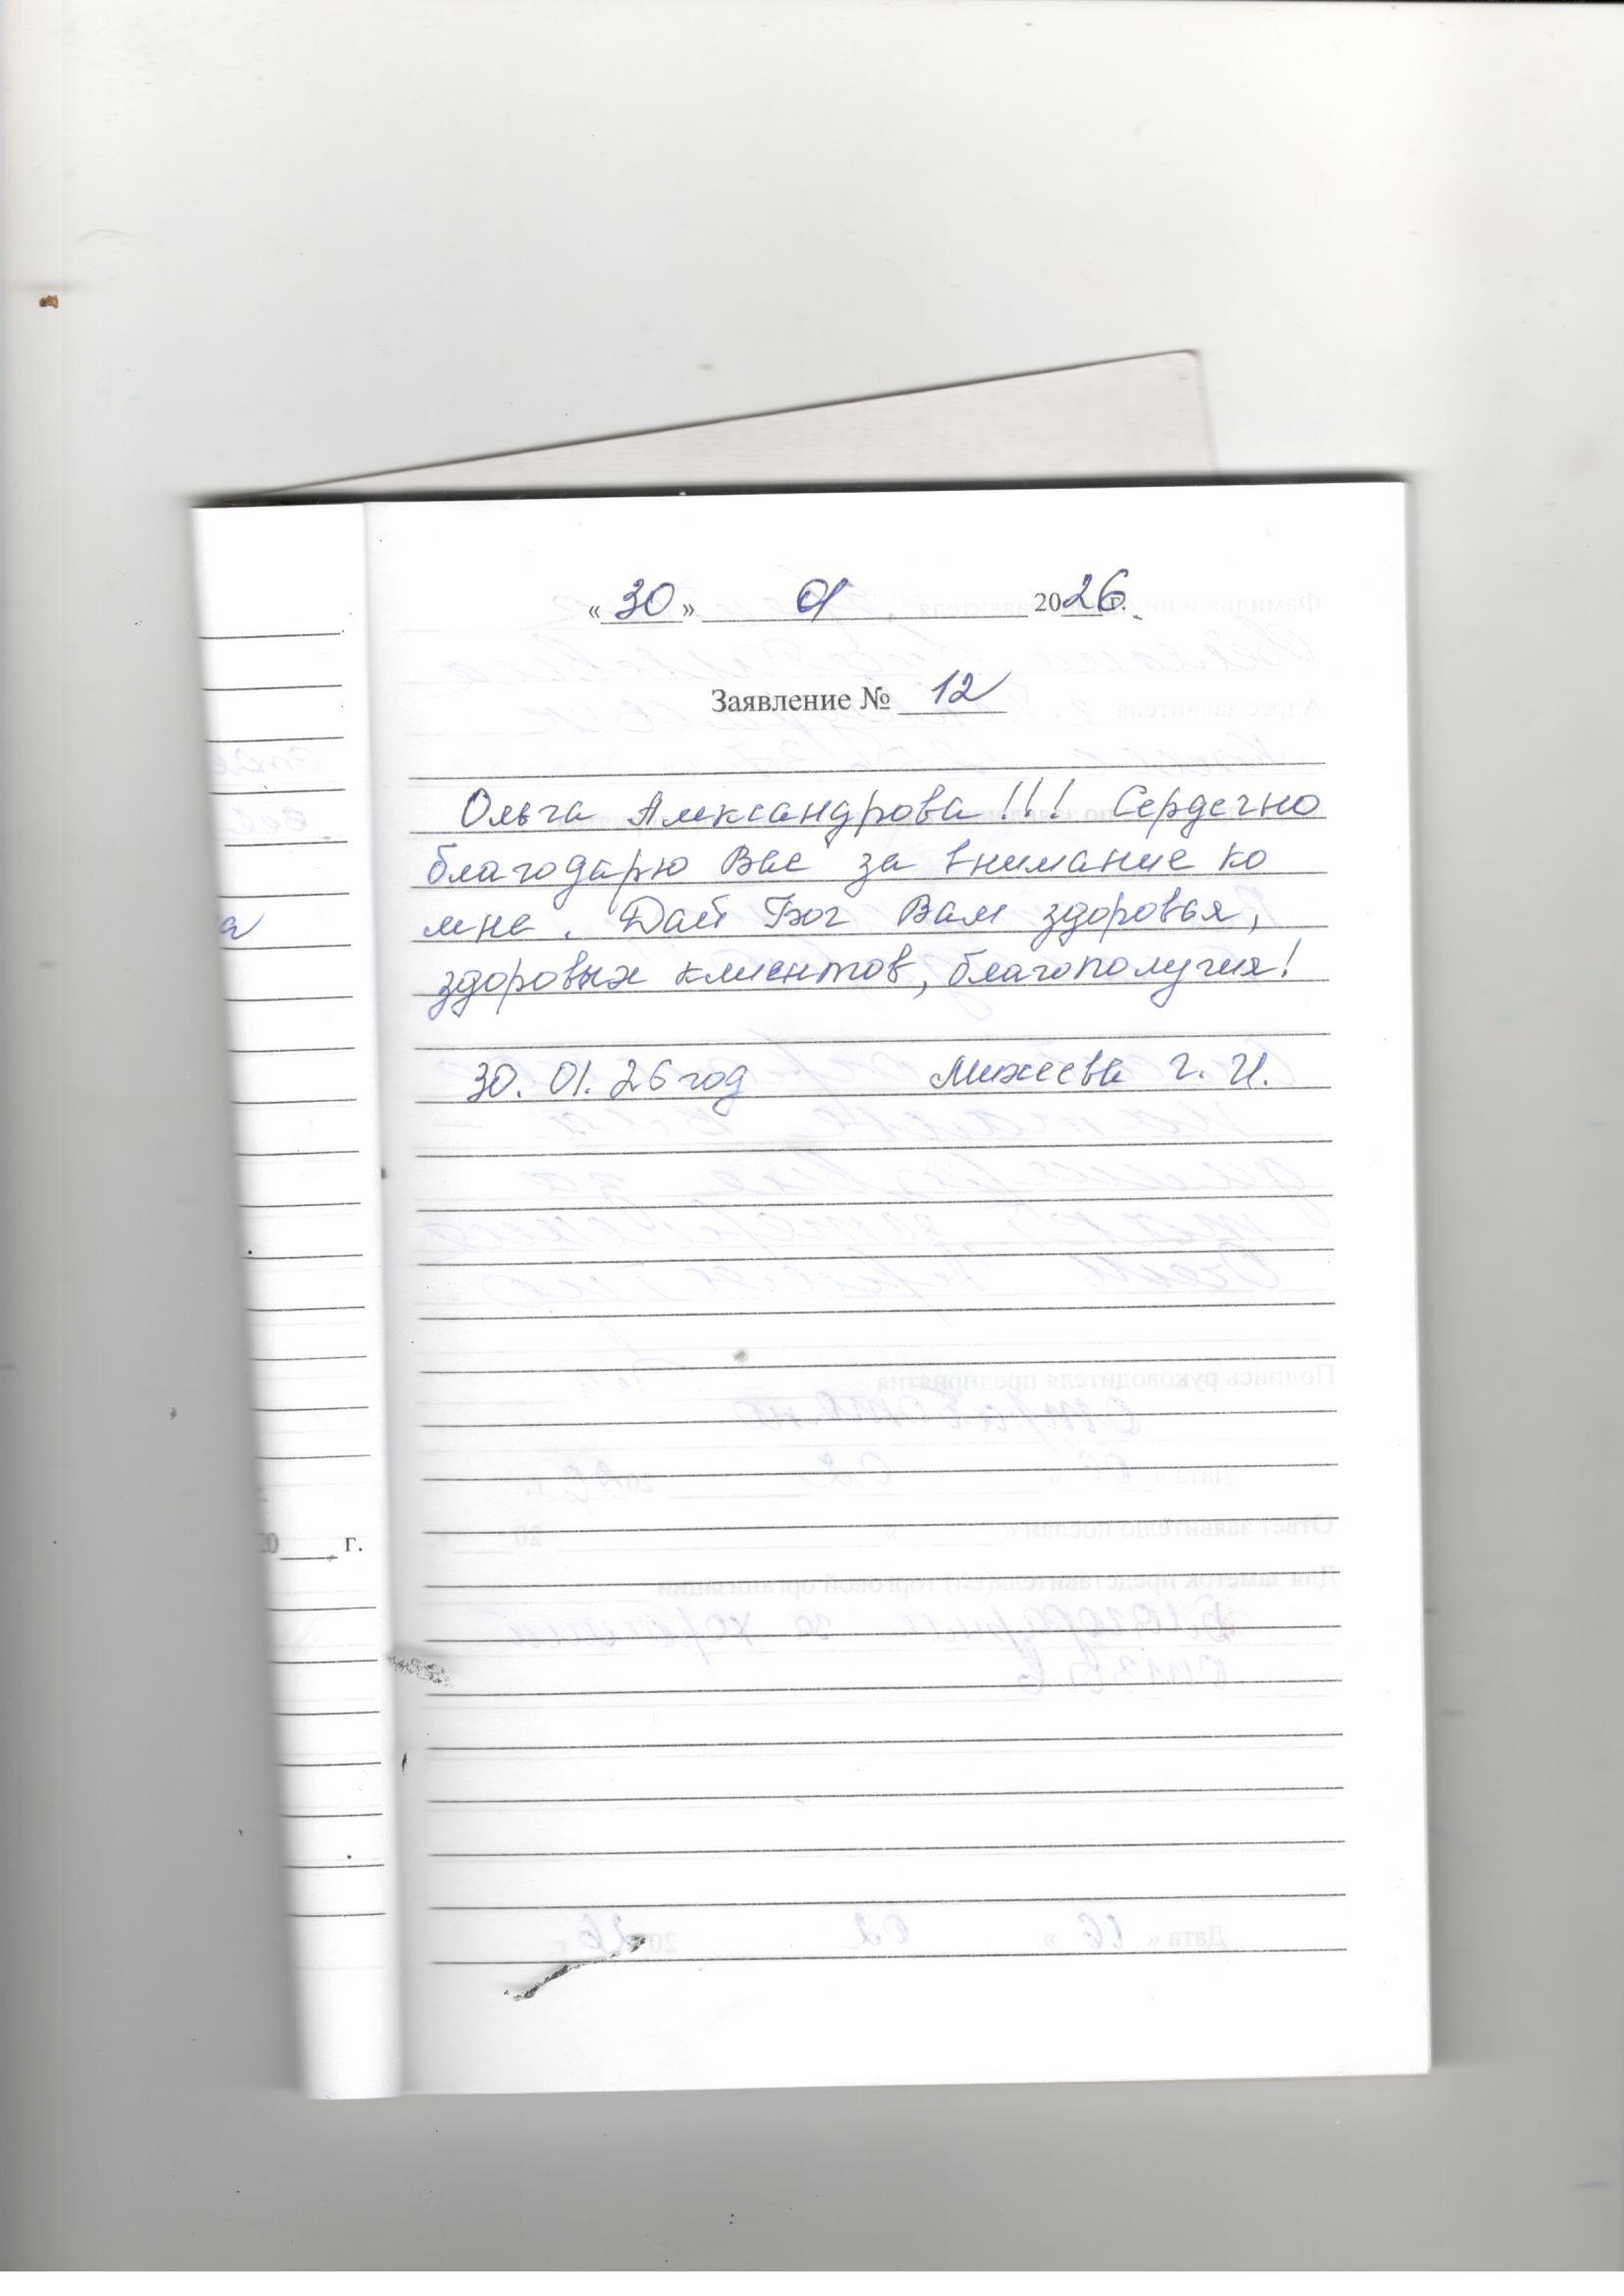 «30» 01 2026г.
Заявление № 12
Ольга Александрова!!! Сердечно
благодарю Вас за внимание ко
мне. Дай Бог Вам здоровья,
здоровых клиентов, благополучия!
30.01.26 год Михеева Г. И.
20____ г.